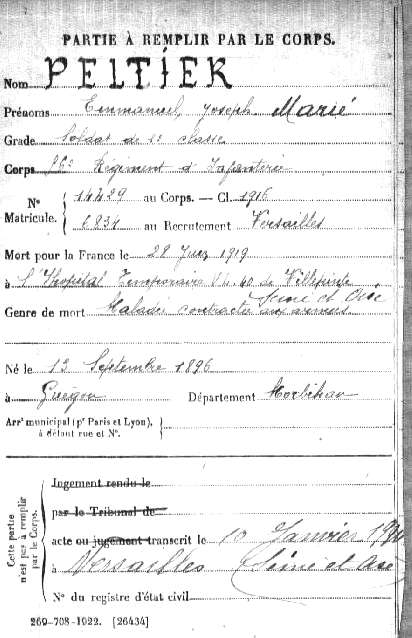 PARTIE À REMPLIR PAR LE CORPS.
Nom PELTIER
Prénoms Emmanuel, Joseph Marie
Grade Soldat de 2e classe
Corps Régiment d'Infanterie
N° Matricule. 14439 au Corps. — Cl. 1916
6834 au Recrutement Versailles
Mort pour la France le 28 1919
à l'Hôpital Temporaire de Villepinte
Seine et Oise
Genre de mort Maladie contractée aux armées
Né le 13 Septembre 1896
à Guégon Département Morbihan
Arrt municipal (pr Paris et Lyon),
à défaut rue et N°.
Cette partie n'est pas à remplir par le Corps.
Jugement rendu le
par le Tribunal de
acte ou jugement transcrit le 10 Janvier
à Versailles Seine et Oise
N° du registre d'état civil
269-708-1922. [26434]